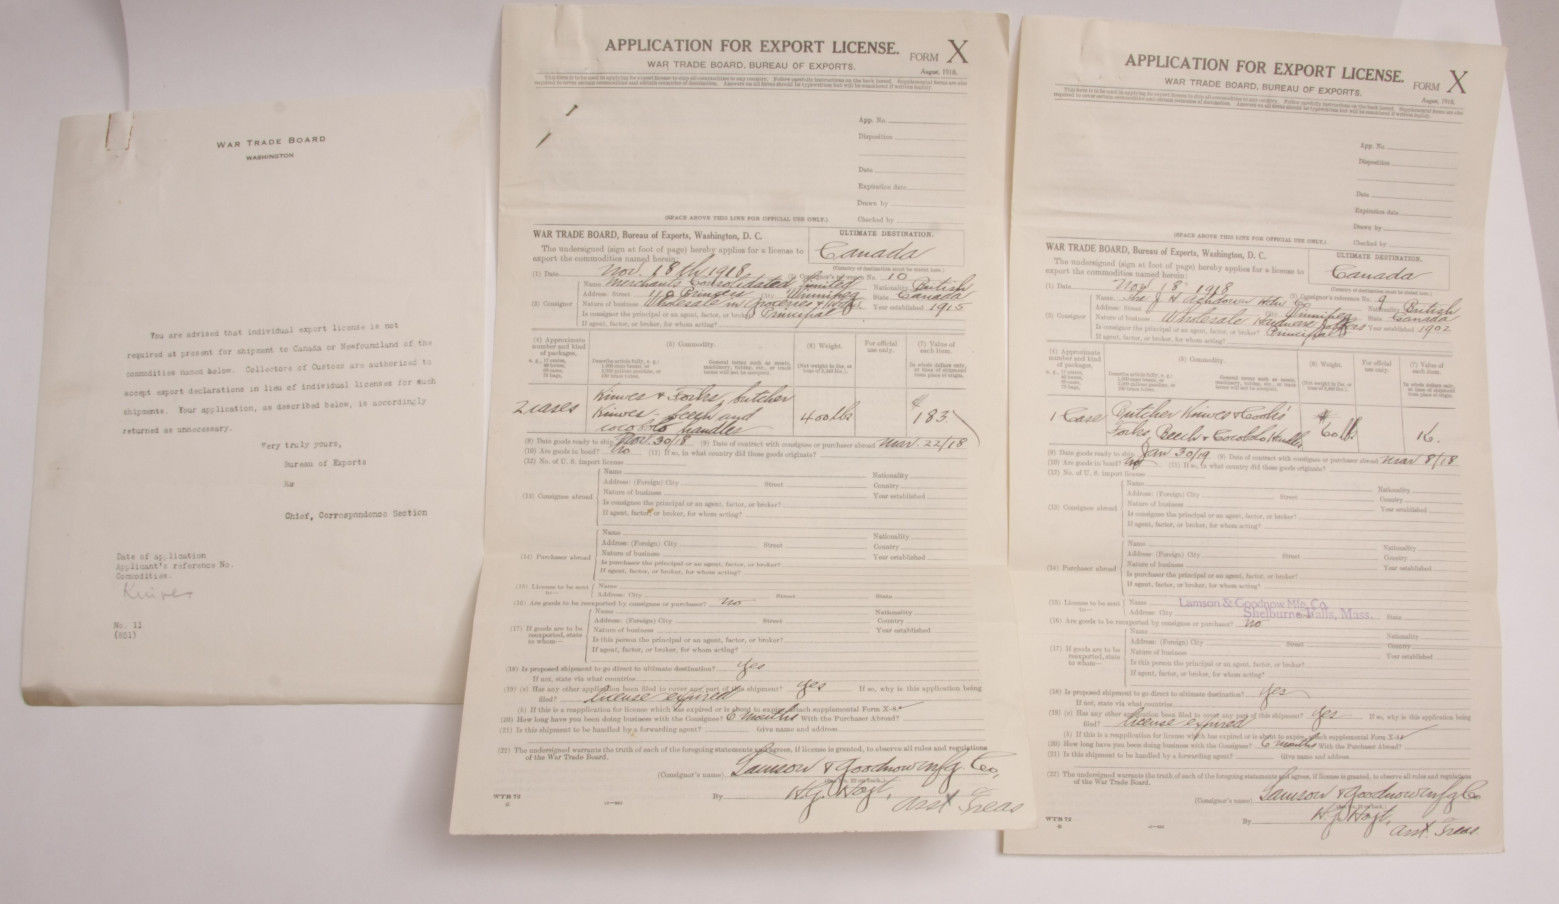 WAR TRADE BOARD
WASHINGTON
You are advised that individual export license is not
required at present for shipment to Canada or Newfoundland of the
commodities named below. Collectors of Customs are authorized to
accept export declarations in lieu of individual licenses for such
shipments. Your application, as described below, is accordingly
returned as unnecessary.
Very truly yours,
Bureau of Exports
Chief, Correspondence Section
Date of application
Applicant's reference No.
Commodities.
Knives
No. 11
(801)
APPLICATION FOR EXPORT LICENSE. FORM X
WAR TRADE BOARD, BUREAU OF EXPORTS. August, 1918.
App. No.
Disposition
Date
Expiration date
Drawn by
(SPACE ABOVE THIS LINE FOR OFFICIAL USE ONLY.) Checked by
WAR TRADE BOARD, Bureau of Exports, Washington, D. C. ULTIMATE DESTINATION.
The undersigned (sign at foot of page) hereby applies for a license to Canada
export the commodities named herein: (Country of destination must be stated here.)
(1) Date Nov. 18th 1918 (2) Consignor's reference No. 10
Name Merchants Consolidated Limited Nationality British
Address: Street Princess City Winnipeg State Canada
(3) Consignee Nature of business Wholesale in Groceries Year established 1915
Is consignee the principal or agent, factor, or broker? Principal
If agent, factor, or broker, for whom acting?
(4) Approximate number and kind of packages. (5) Commodity. (6) Weight. For official use only. (7) Value of each item.
2 cases Knives & Forks, butcher
Knives - beech and 400 lbs $183
cocobolo handles
(8) Date goods ready to ship Nov. 30/18 (9) Date of contract with consignee or purchaser abroad Mar. 22/18
(10) Are goods in bond? No (11) If so, in what country did these goods originate?
(12) No. of U. S. import license
Name Nationality
Address: (Foreign) City Street Country
(13) Consignee abroad Nature of business Year established
Is consignee the principal or an agent, factor, or broker?
If agent, factor, or broker, for whom acting?
Name Nationality
Address: (Foreign) City Street Country
(14) Purchaser abroad Nature of business Year established
Is purchaser the principal or an agent, factor, or broker?
If agent, factor, or broker, for whom acting?
(15) License to be sent to— Name
Address: City Street State
(16) Are goods to be reexported by consignee or purchaser? No
Name Nationality
Address: (Foreign) City Street Country
(17) If goods are to be reexported, state to whom— Nature of business Year established
Is this person the principal or an agent, factor, or broker?
If agent, factor, or broker, for whom acting?
(18) Is proposed shipment to go direct to ultimate destination? yes
If not, state via what countries
(19) (a) Has any other application been filed to cover any part of this shipment? yes If so, why is this application being
filed? license expired
(b) If this is a reapplication for license which has expired or is about to expire, attach supplemental Form X-8
(20) How long have you been doing business with the Consignee? 6 months With the Purchaser Abroad?
(21) Is this shipment to be handled by a forwarding agent? Give name and address
(22) The undersigned warrants the truth of each of the foregoing statements and agrees, if license is granted, to observe all rules and regulations
of the War Trade Board.
(Consignor's name) Lamson & Goodnow Mfg Co,
By H.G. Hoyt, Asst Treas
WTB 72
APPLICATION FOR EXPORT LICENSE. FORM X
WAR TRADE BOARD, BUREAU OF EXPORTS. August, 1918.
App. No.
Disposition
Date
Expiration date
Drawn by
(SPACE ABOVE THIS LINE FOR OFFICIAL USE ONLY.) Checked by
WAR TRADE BOARD, Bureau of Exports, Washington, D. C. ULTIMATE DESTINATION.
The undersigned (sign at foot of page) hereby applies for a license to Canada
export the commodities named herein: (Country of destination must be stated here.)
(1) Date Nov 18 1918 (2) Consignor's reference No. 9
Name The J H Ashdown Hdw Co Nationality British
Address: Street City Winnipeg State Canada
(3) Consignee Nature of business Wholesale Hardware Year established 1902
Is consignee the principal or agent, factor, or broker? Principal
If agent, factor, or broker, for whom acting?
(4) Approximate number and kind of packages. (5) Commodity. (6) Weight. For official use only. (7) Value of each item.
1 Case Butcher Knives & Cooks'
Forks, Beech & Cocobolo Handles 60 lbs 16.
(8) Date goods ready to ship Jan 30/19 (9) Date of contract with consignee or purchaser abroad Mar 8/18
(10) Are goods in bond? No (11) If so, in what country did these goods originate?
(12) No. of U. S. import license
Name Nationality
Address: (Foreign) City Street Country
(13) Consignee abroad Nature of business Year established
Is consignee the principal or an agent, factor, or broker?
If agent, factor, or broker, for whom acting?
Name Nationality
Address: (Foreign) City Street Country
(14) Purchaser abroad Nature of business Year established
Is purchaser the principal or an agent, factor, or broker?
If agent, factor, or broker, for whom acting?
(15) License to be sent to— Name Lamson & Goodnow Mfg. Co.
Address: City Shelburne Falls, Mass. State
(16) Are goods to be reexported by consignee or purchaser? No
Name Nationality
Address: (Foreign) City Street Country
(17) If goods are to be reexported, state to whom— Nature of business Year established
Is this person the principal or an agent, factor, or broker?
If agent, factor, or broker, for whom acting?
(18) Is proposed shipment to go direct to ultimate destination? yes
If not, state via what countries
(19) (a) Has any other application been filed to cover any part of this shipment? yes If so, why is this application being
filed? license expired
(b) If this is a reapplication for license which has expired or is about to expire, attach supplemental Form X-8
(20) How long have you been doing business with the Consignee? 6 months With the Purchaser Abroad?
(21) Is this shipment to be handled by a forwarding agent? Give name and address
(22) The undersigned warrants the truth of each of the foregoing statements and agrees, if license is granted, to observe all rules and regulations
of the War Trade Board.
(Consignor's name) Lamson & Goodnow Mfg Co
By H.G. Hoyt, Asst. Treas.
WTB 72